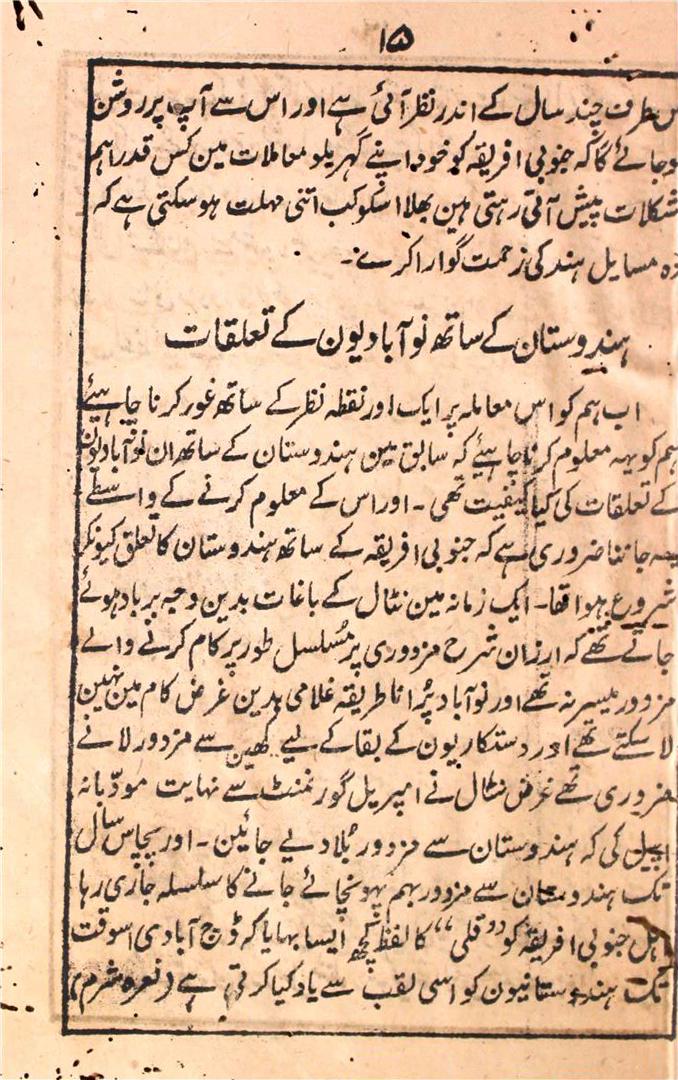 ۱۵
اس طرف چند سال کے اندر نظر آئی ہے اور اس سے آپ پر روشن
ہوجائے گا کہ جنوبی افریقہ کو خود اپنے گھریلو معاملات مین کس قدر اہم
مشکلات پیش آتی رہتی ہین بھلا اسکو کب اتنی مہلت ہوسکتی ہے کہ
وہ مسایل ہند کی زحمت گوارا کرے۔
ہندوستان کے ساتھ نوآبادیون کے تعلقات
اب ہم کو اس معاملہ پر ایک اور نقطہ نظر کے ساتھ غور کرنا چاہیئے
ہم کو یہہ معلوم کرنا چاہیئے کہ سابق مین ہندوستان کے ساتھ ان نوآبادیون
کے تعلقات کی کیا کیفیت تھی۔ اور اس کے معلوم کرنے کے واسطے
یہہ جاننا ضروری ہے کہ جنوبی افریقہ کے ساتھ ہندوستان کا تعلق کیونکر
شروع ہوا تھا۔ ایک زمانہ مین نٹال کے باغات بدین وجہ برباد ہوئے
جاتے تھے کہ ارزان شرح مزدوری پر مسلسل طور پر کام کرنے والے
مزدور میسر نہ تھے اور نوآباد پُرانا طریقہ غلامی بدین غرض کام مین نہین
لاسکتے تھے اور دستکاریون کے بقا کے لیے کہین سے مزدور لانے
ضروری تھے غرض نٹال نے امپریل گورنمنٹ سے نہایت مودّبانہ
اپیل کی کہ ہندوستان سے مزدور بُلا دیے جائین۔ اور پچاس سال
تک ہندوستان سے مزدور بہم پہونچائے جانے کا سلسلہ جاری رہا
اہل جنوبی افریقہ کو ’’قلی‘‘ کا لفظ کچھ ایسا بہایا کہ ڈچ آبادی اسوقت
تک ہندوستانیون کو اسی لقب سے یاد کیا کرتی ہے (نعرہ شرم)